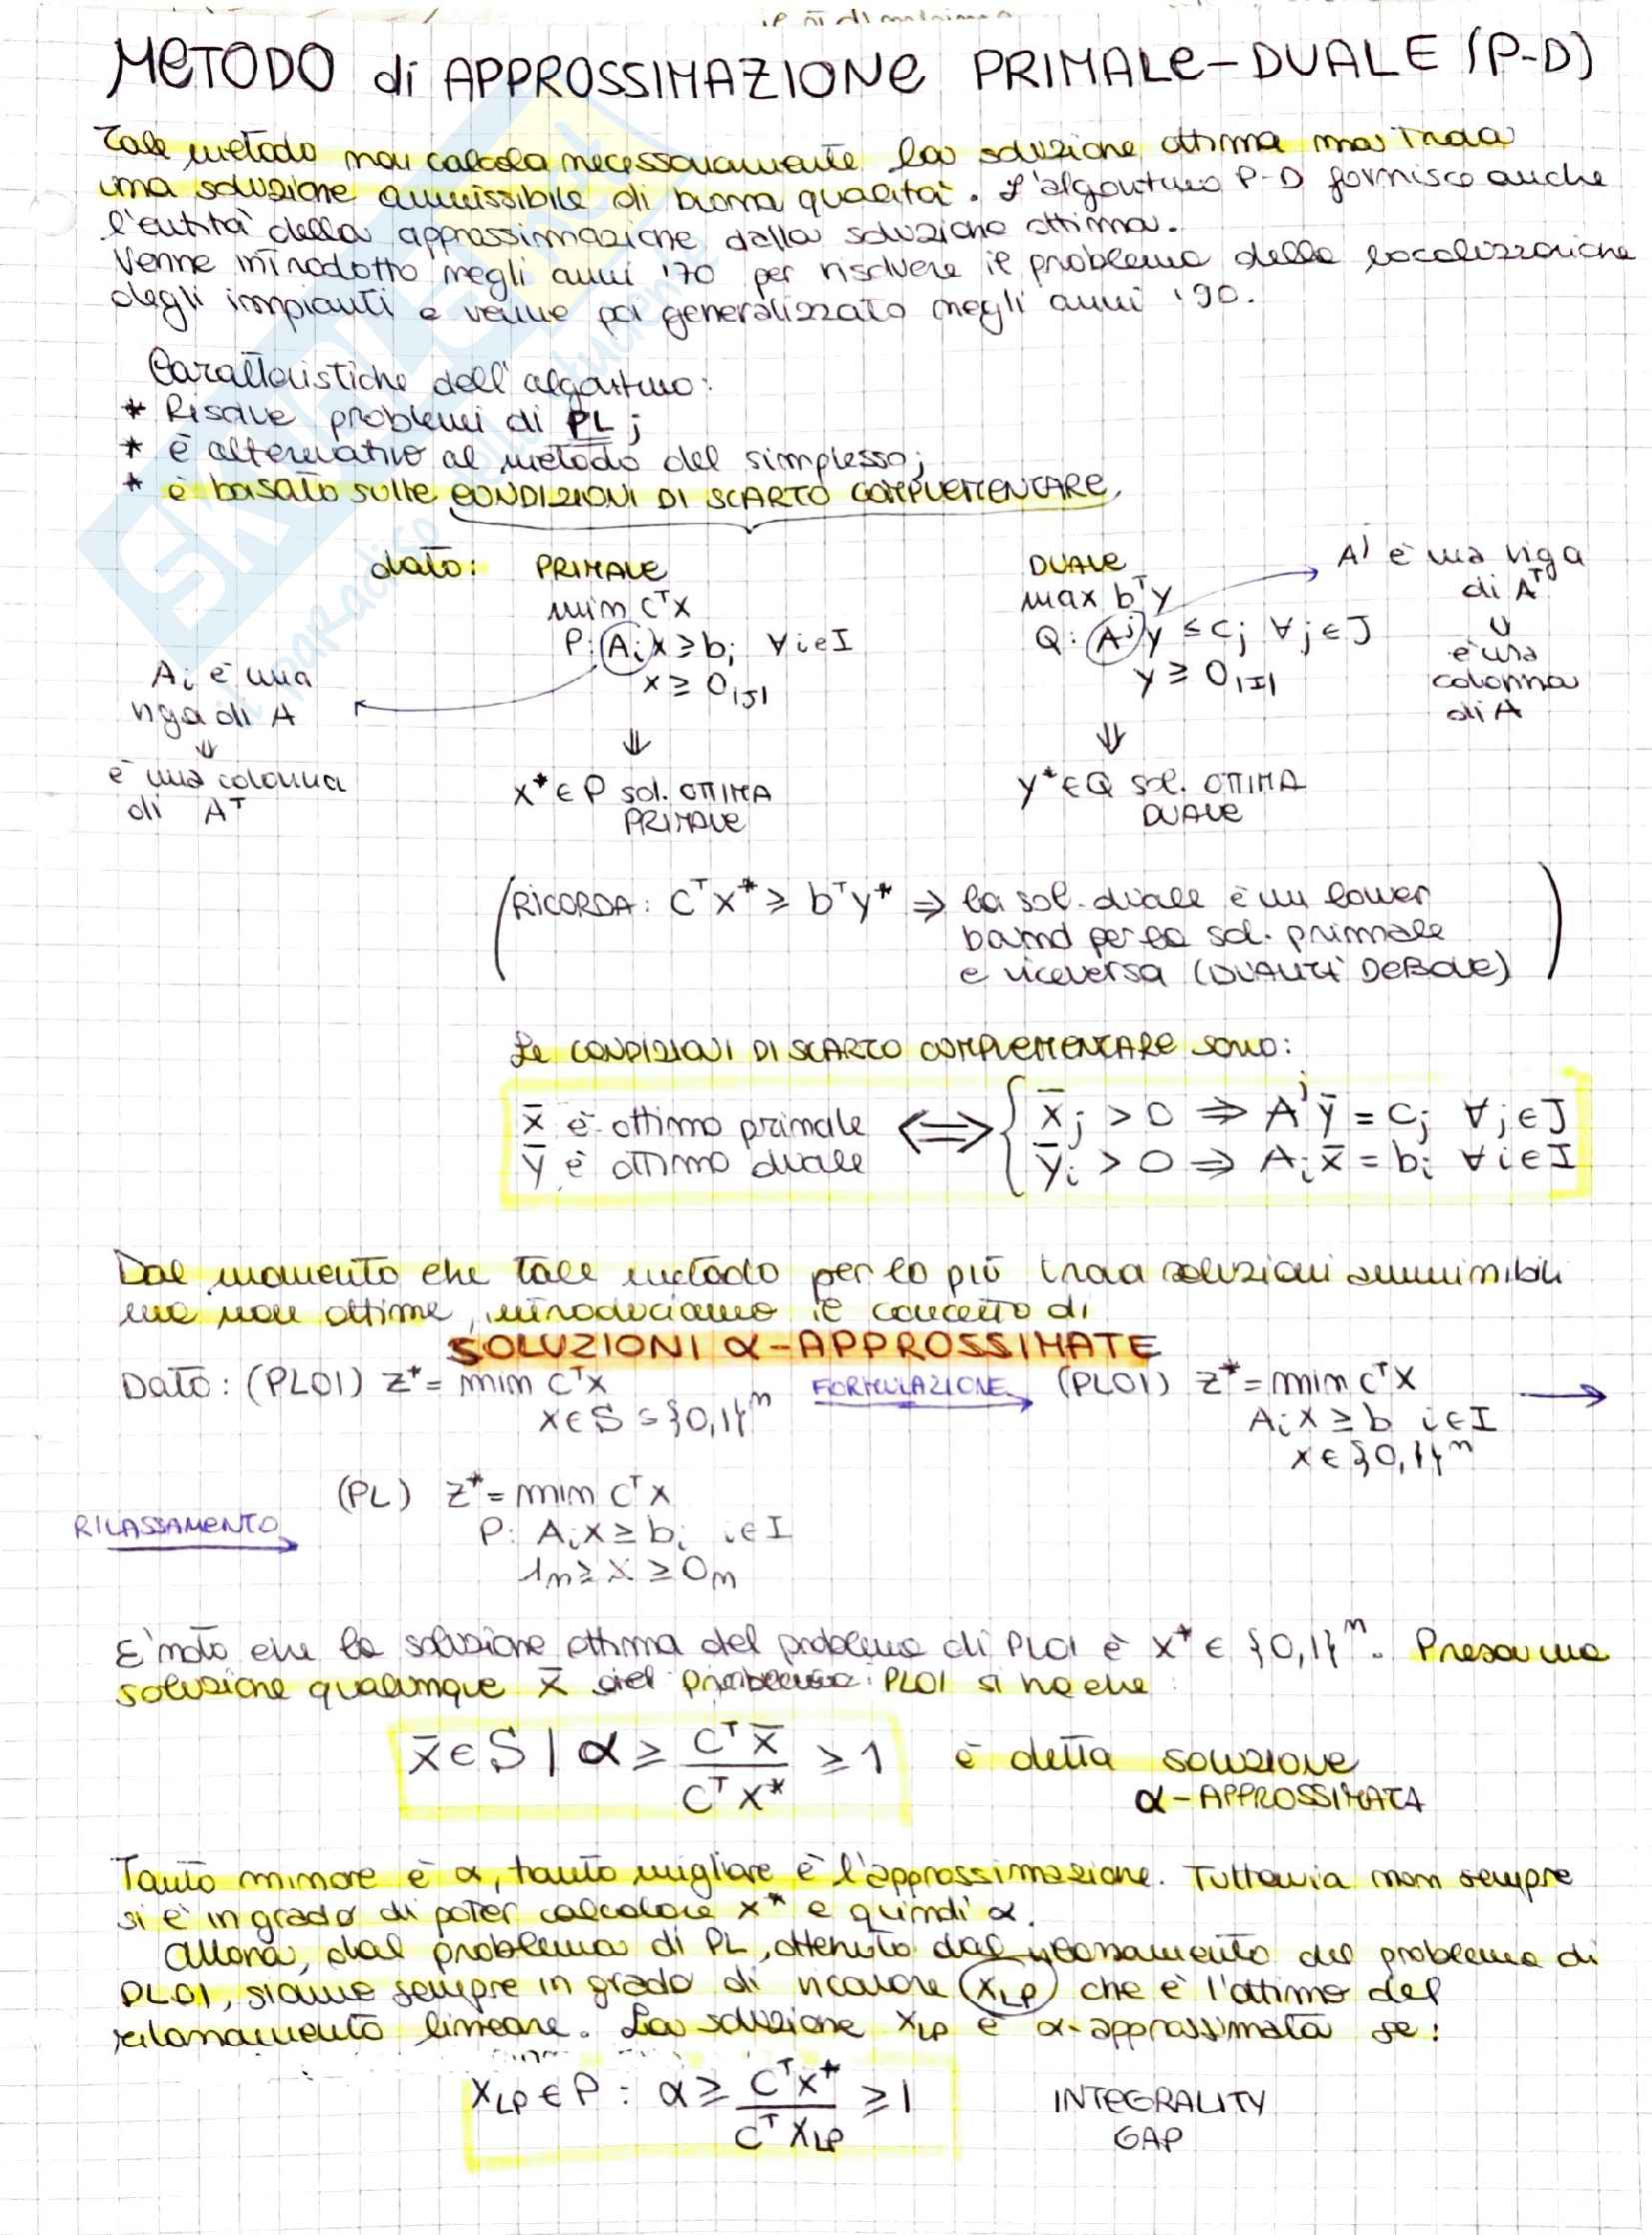 METODO di APPROSSIMAZIONE PRIMALE-DUALE (P-D)
Tale metodo non calcola necessariamente la soluzione ottima ma trova
una soluzione ammissibile di buona qualità. L'algoritmo P-D fornisce anche
l'entità della approssimazione dalla soluzione ottima.
Venne introdotto negli anni '70 per risolvere il problema della localizzazione
degli impianti e venne poi generalizzato negli anni '90.
Caratteristiche dell'algoritmo:
* Risolve problemi di PL;
* è alternativo al metodo del simplesso;
* è basato sulle CONDIZIONI DI SCARTO COMPLEMENTARE.
dato: PRIMALE
min cᵀx
P: Aᵢx ≥ bᵢ ∀i∈I
x ≥ 0|J|
Aᵢ è una
riga di A
⇓
è una colonna
di Aᵀ
⇓
x*∈P sol. OTTIMA
PRIMALE
DUALE
max bᵀy
Q: Aʲy ≤ cⱼ ∀j∈J
y ≥ 0|I|
Aʲ è una riga
di Aᵀ
⇓
è una
colonna
di A
⇓
y*∈Q sol. OTTIMA
DUALE
(RICORDA: cᵀx* ≥ bᵀy* ⇒ la sol. duale è un lower
bound per la sol. primale
e viceversa (DUALITÀ DEBOLE))
Le CONDIZIONI DI SCARTO COMPLEMENTARE sono:
x̄ è ottimo primale ⟺ { x̄ⱼ > 0 ⇒ Aʲȳ = cⱼ ∀j∈J
ȳ è ottimo duale ȳᵢ > 0 ⇒ Aᵢx̄ = bᵢ ∀i∈I
Dal momento che tale metodo per lo più trova soluzioni ammissibili
ma non ottime, introduciamo il concetto di
SOLUZIONI α-APPROSSIMATE
Dato: (PL01) z* = min cᵀx FORMULAZIONE → (PL01) z* = min cᵀx →
x∈S ⊆ {0,1}ⁿ Aᵢx ≥ b i∈I
x∈{0,1}ⁿ
RILASSAMENTO →
(PL) z* = min cᵀx
P: Aᵢx ≥ bᵢ i∈I
1ₙ ≥ x ≥ 0ₙ
E' noto che la soluzione ottima del problema di PL01 è x*∈{0,1}ⁿ. Presa una
soluzione qualunque x̄ del problema PL01 si ha che:
x̄∈S | α ≥ cᵀx̄ / cᵀx* ≥ 1 è detta SOLUZIONE
α-APPROSSIMATA
Tanto minore è α, tanto migliore è l'approssimazione. Tuttavia non sempre
si è in grado di poter calcolare x* e quindi α.
Allora, dal problema di PL, ottenuto dal rilassamento del problema di
PL01, siamo sempre in grado di ricavare x_LP che è l'ottimo del
rilassamento lineare. La soluzione x_LP è α-approssimata se:
x_LP∈P : α ≥ cᵀx* / cᵀx_LP ≥ 1 INTEGRALITY
GAP